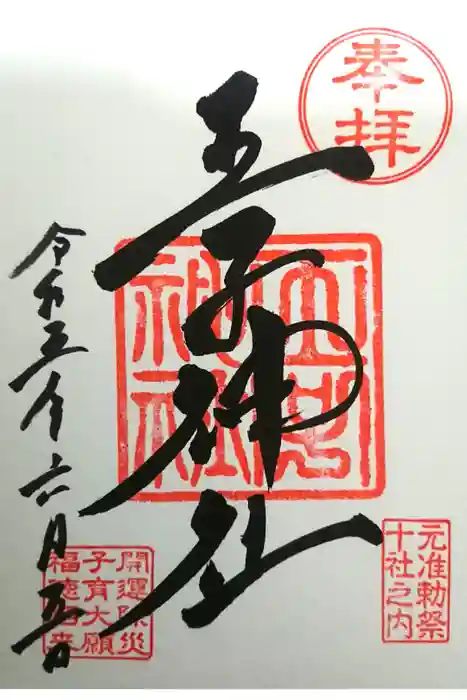 奉拝
王子神社
王子神社
元准勅祭
十社之内
令和五年六月五日
開運除災
子育大願
福徳招来